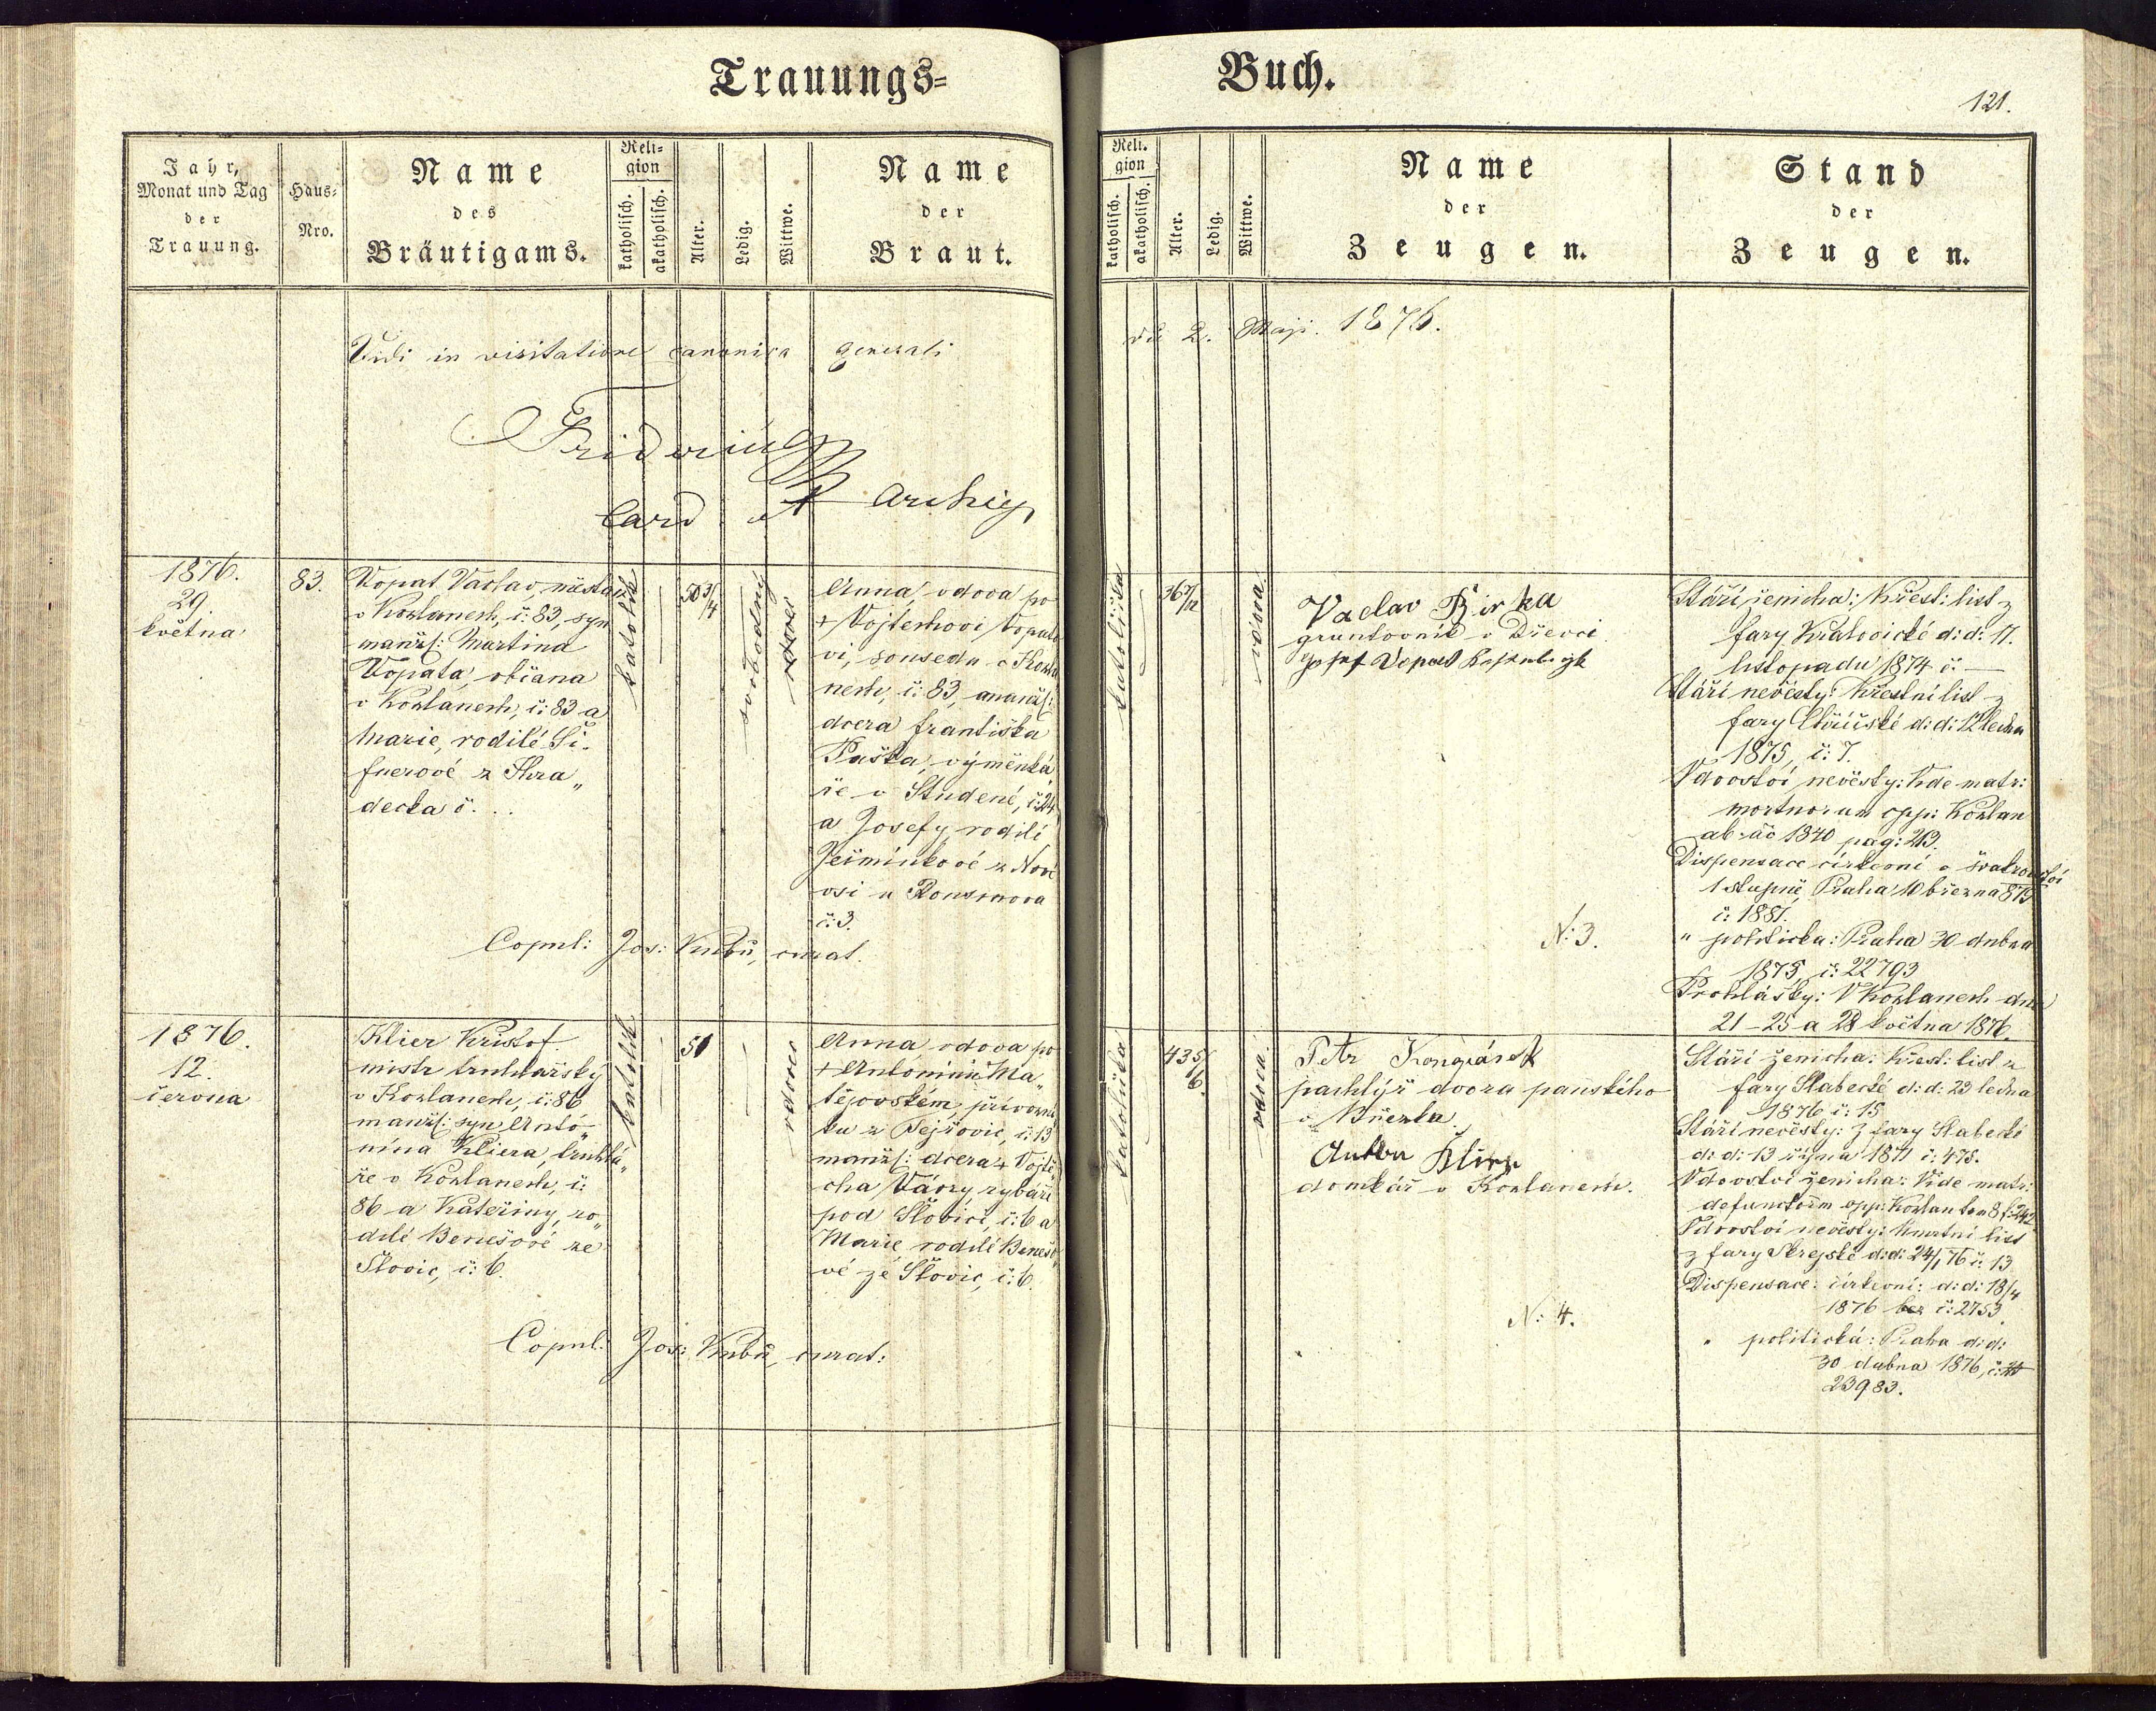 Trauungs=
Buch.
121.
Jahr,
Monat und Tag
der
Trauung.
Haus=
Nro.
Name
des
Bräutigams.
Reli=
gion
katholisch.
akatholisch.
Alter.
Ledig.
Wittwe.
Name
der
Braut.
Reli.
gion
katholisch.
akatholisch.
Alter.
Ledig.
Wittwe.
Name
der
Zeugen.
Stand
der
Zeugen.
Vidi in visitatione canonica generali
2. Maji. 1876.
Fridericus
Card
1876.
29.
května
83.
Vopat Vaclav,
v Kozlanech, č: 83, syn
manžl: Martina
Vopata, občana
v Kozlanech, č: 83 a
Marie, rodilé Ši-
fnerové z Hra„
decka č. . .
katolík
50 3/4
svobodný
vdovec
Anna, vdova po
+ Vojtěchovi Vopato
vi, sousedu v Kozla
nech, č: 83, a manžl:
dcera Františka
Paška, výměnká
ře v Studené, č: 24
a Josefy, rodilé
z Nové
vsi u Rousínova
č: 3.
Copul: Jos: Kubů, curat.
katolička
36 7/12
vdova
Vaclav Birka
gruntovník v Dřevci.
Josef Vopat
N: 3.
Stáří ženicha: Křest: list z
fary Kralovické d: d: 17.
listopadu 1874 č: —
Stáří nevěsty: Křestní list z
fary d: d: 12 ledna
1875, č: 7.
Vdovství nevěsty: Vide matr:
mortuorum opp: Kozlan
ab 1840 pag: 263.
Dispensace církevní v švakrovství
1 stupně, Praha 10 března 875
č: 1881.
" politicka: Praha 30 dubna
1875, č: 22793
Prohlášky: V Kozlanech dne
21 – 25 a 28 května 1876.
1876.
12.
června
Klier Kristof.
mistr truhlářský
v Kozlanech, č: 86
manžl: syn Antó„
nína Kliera, truhlá„
ře v Kozlanech, č:
86 a Kateřiny, ro„
dilé Benešové ze
Šlovic, č: 6.
katolík
51
vdovec
Anna, vdova po
+ Antonínu Ma„
tějovském,
ku z Tejřovic, č: 13
manžl: dcera + Vojtě„
cha Vávry, rybáře
pod Šlovici, č: 6 a
Marie, rodilé Benešo„
vé ze Šlovic, č: 6.
Copul: Jos: Kubů, curat:
katolička
43 5/6
vdova.
Petr
pachtýř dvora panského
v Březka.
Anton Klier
domkář v Kozlanech.
N: 4.
Stáří ženicha: Křest: list z
fary Slabecké d: d: 23 ledna
1876 č: 15
Stáří nevěsty: Z fary Slabecké
d: d: 13 října 1871 č: 475.
Vdovství ženicha: Vide matr:
defunctorum opp: Kozlan tom 8 f: 242
Vdovství nevěsty: Úmrtní list
z fary Skrejské d: d: 24/1 76 č: 13
Dispensace: církevní: d: d: 18/4
1876 č: 2753.
" politická: Praha d: d:
30 dubna 1876, č:
23983.